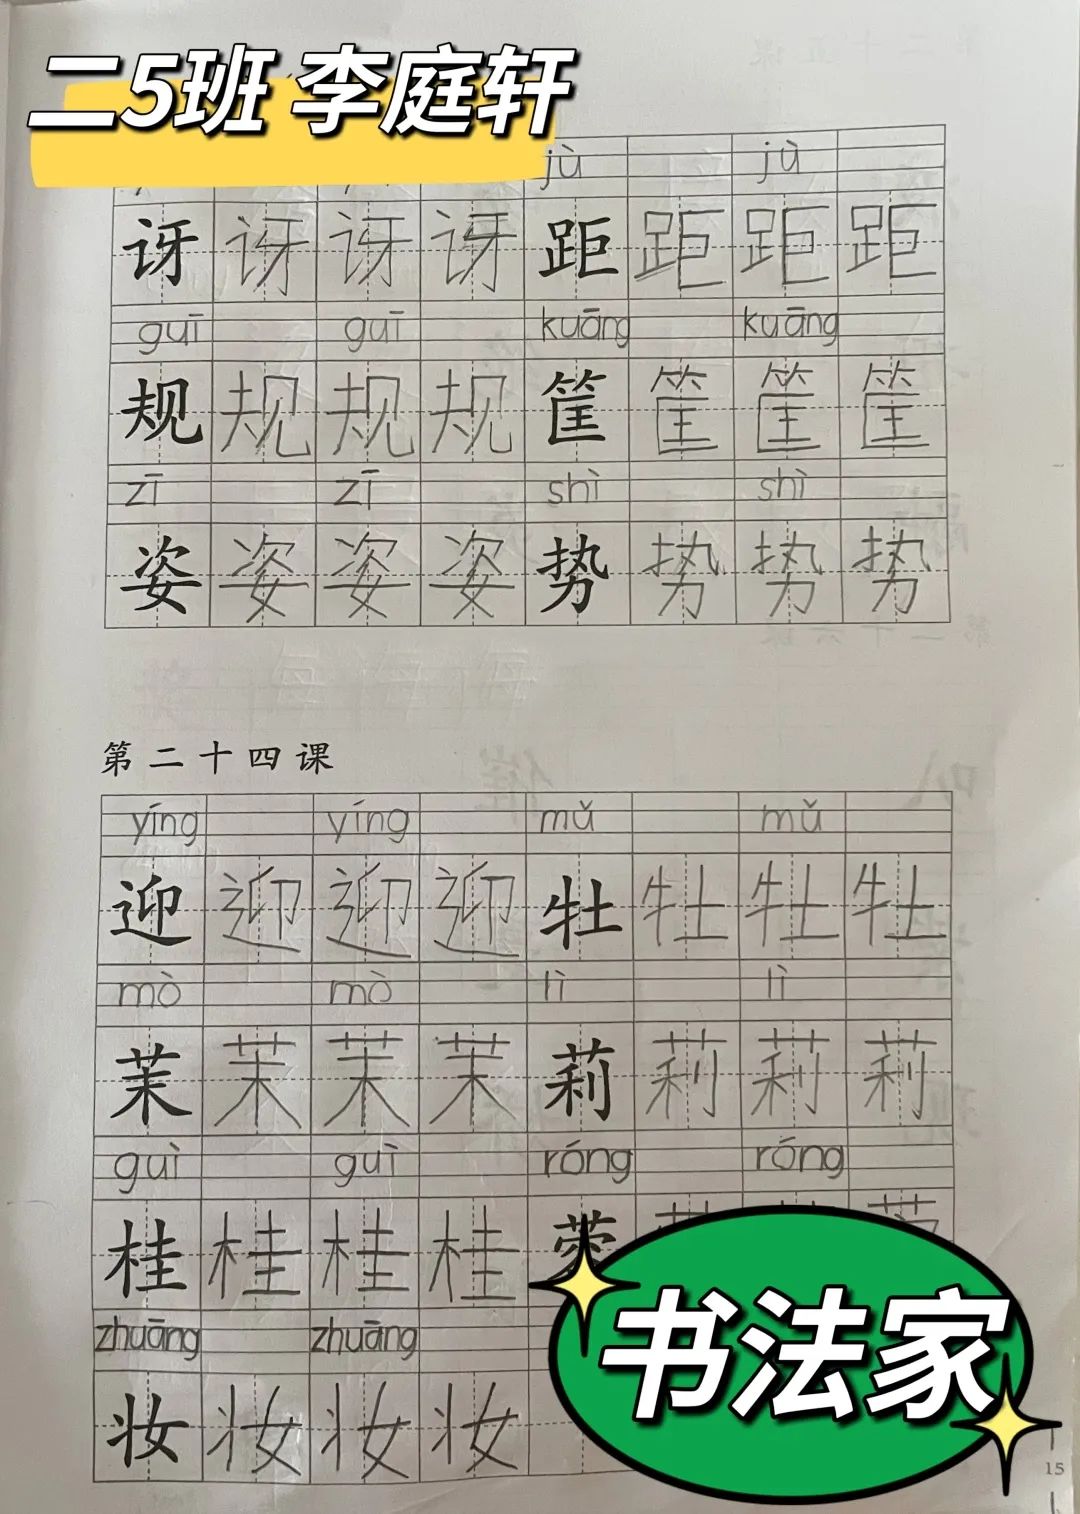 二5班 李庭轩
jù jù
讶 讶 讶 讶 距 距 距 距
guī guī kuāng kuāng
规 规 规 规 筐 筐 筐 筐
zī zī shì shì
姿 姿 姿 姿 势 势 势 势
第二十四课
yíng yíng mǔ mǔ
迎 迎 迎 迎 牡 牡 牡 牡
mò mò lì lì
茉 茉 茉 茉 莉 莉 莉 莉
guì guì róng róng
桂 桂 桂 桂 蓉
zhuāng zhuāng
妆 妆 妆 妆
书法家
15